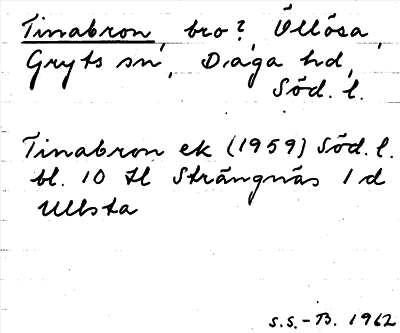 Tinabron, bro?, Ullösa,
Gryts sn, Daga hd,
Söd. l.
Tinabron ek (1959) Söd. l.
bl. 10 tl Strängnäs 1 d
Ullsta
S.S.-B. 1962